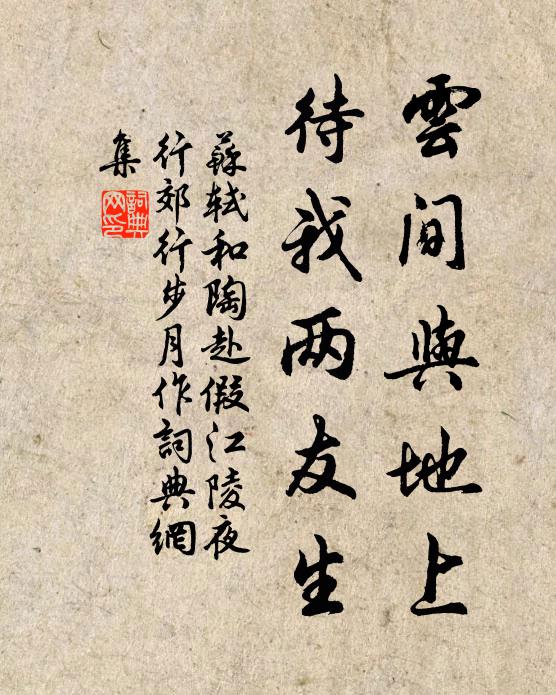 雲间與地上
待我两友生
蘇軾和陶赴假江陵夜
行郊行步月作詞典網
集
詞典
网印